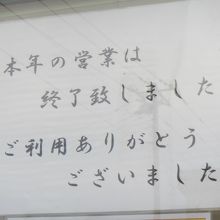 本年の営業は
終了致しました
ご利用ありがとう
ございました